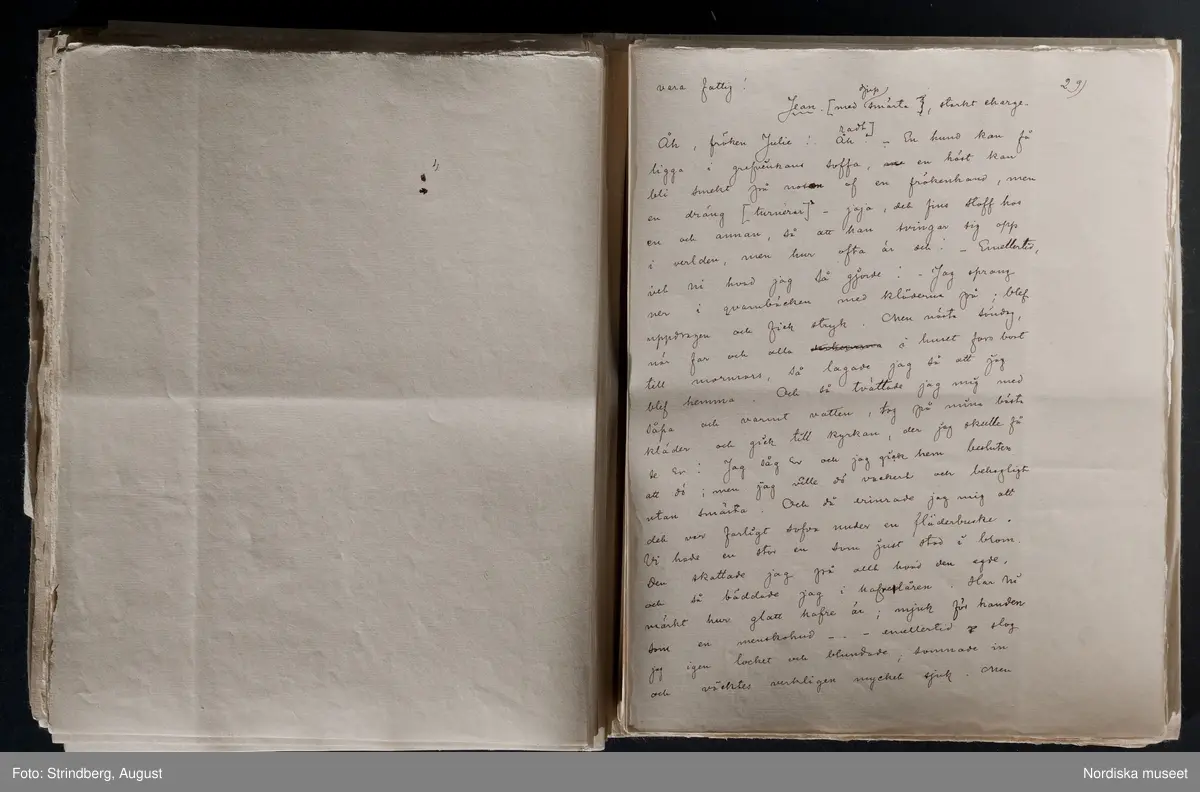 29)
vara fattig!
djup
Jean. [med smärta], starkt charge-
radt]
Åh, fröken Julie! Åh! – En hund kan få
ligga i grefvinnans soffa, en häst kan
bli smekt på nosen af en frökenhand, men
en dräng [turnerar] – jaja, det fins stoff hos
en och annan, så att han svingar sig opp
i verlden, men hur ofta är det! – Emellertid,
vet ni hvad jag så gjorde! – Jag sprang
ner i qvarnbäcken med kläderna på; blef
uppdragen och fick stryk. Men nästa söndag,
när far och alla i huset foro bort
till mormors, så lagade jag så att jag
blef hemma. Och så tvättade jag mig med
såpa och varmt vatten, tog på mina bästa
kläder och gick till kyrkan, der jag skulle få
se Er! Jag såg Er och jag gick hem besluten
att dö; men jag ville dö vackert och behagligt
utan smärta. Och då erinrade jag mig att
det var farligt sofva under en fläderbuske.
Vi hade en stor en som just stod i blom.
Den skattade jag på allt hvad den egde,
och så bäddade jag i hafrelåren. Har Ni
märkt hur glatt hafre är; mjuk för handen
som en menskohud – . – emellertid slog
jag igen locket och blundade; somnade in
och väcktes verkligen mycket sjuk. Men
Foto: Strindberg, August
Nordiska museet